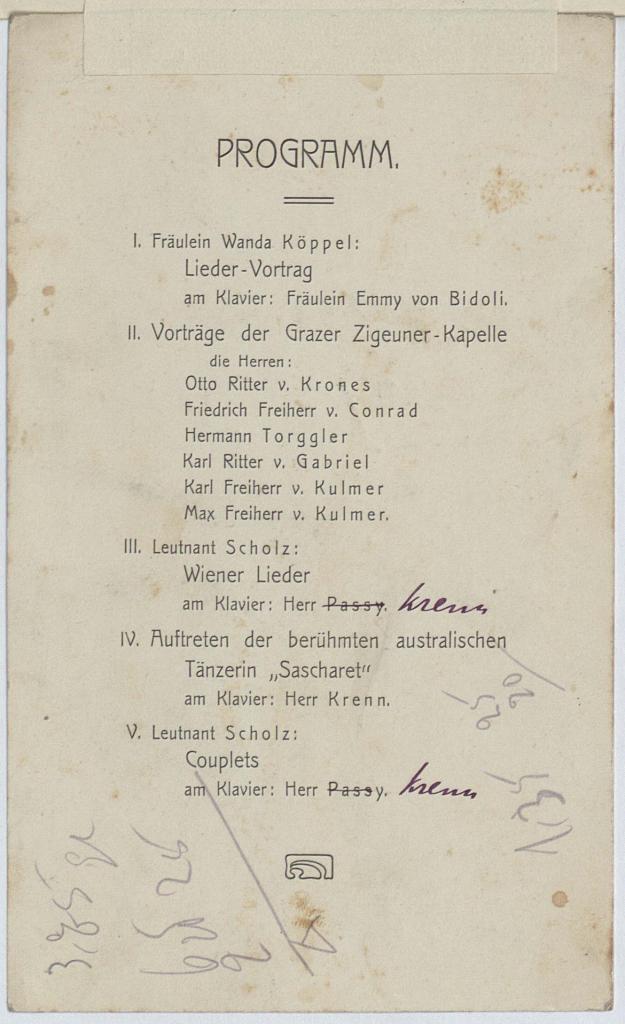 PROGRAMM.
I. Fräulein Wanda Köppel:
Lieder-Vortrag
am Klavier: Fräulein Emmy von Bidoli.
II. Vorträge der Grazer Zigeuner-Kapelle
die Herren:
Otto Ritter v. Krones
Friedrich Freiherr v. Conrad
Hermann Torggler
Karl Ritter v. Gabriel
Karl Freiherr v. Kulmer
Max Freiherr v. Kulmer.
III. Leutnant Scholz:
Wiener Lieder
am Klavier: Herr Passy. Krenn
IV. Auftreten der berühmten australischen
Tänzerin „Sascharet"
am Klavier: Herr Krenn.
V. Leutnant Scholz:
Couplets
am Klavier: Herr Passy. Krenn